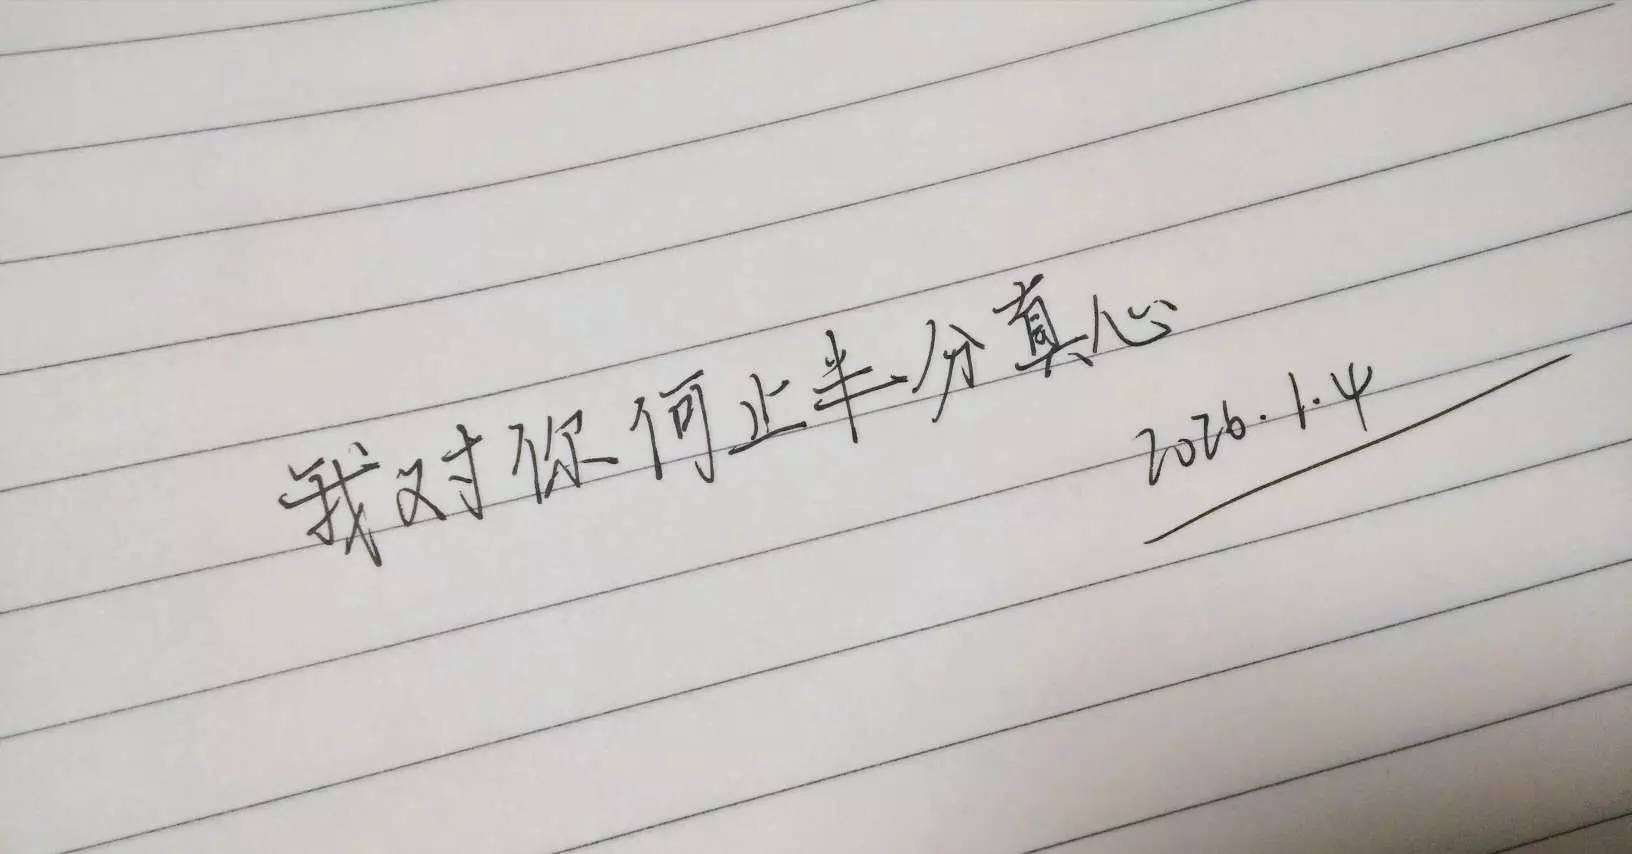 我对你何止半分真心
2026.1.4